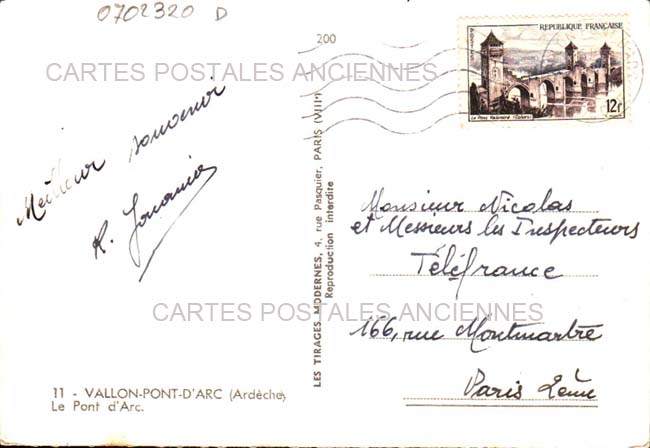 0702320 D
200
REPUBLIQUE FRANÇAISE
POSTES
Le Pont Valentré (Cahors)
12f
CARTES POSTALES ANCIENNES
Meilleur souvenir
R.
LES TIRAGES MODERNES, 4, rue Pasquier, PARIS (VIIIe)
Reproduction interdite
Monsieur Nicolas
et Messieurs les Inspecteurs
Téléfrance
166, rue Montmartre
Paris 2ème
CARTES POSTALES ANCIENNES
11 - VALLON-PONT-D'ARC (Ardèche)
Le Pont d'Arc.